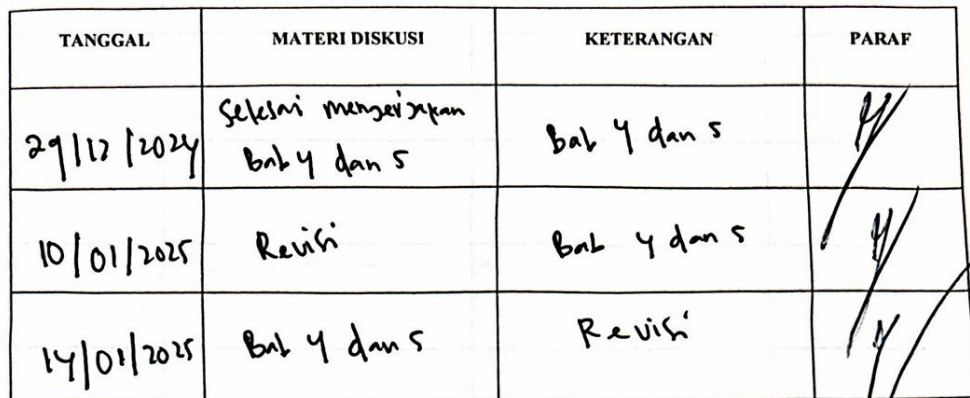 TANGGAL MATERI DISKUSI KETERANGAN PARAF
29/12/2024 Selesai mengerjakan Bab 4 dan 5
Bab 4 dan 5
10/01/2025 Revisi Bab 4 dan 5
14/01/2025 Bab 4 dan 5 Revisi